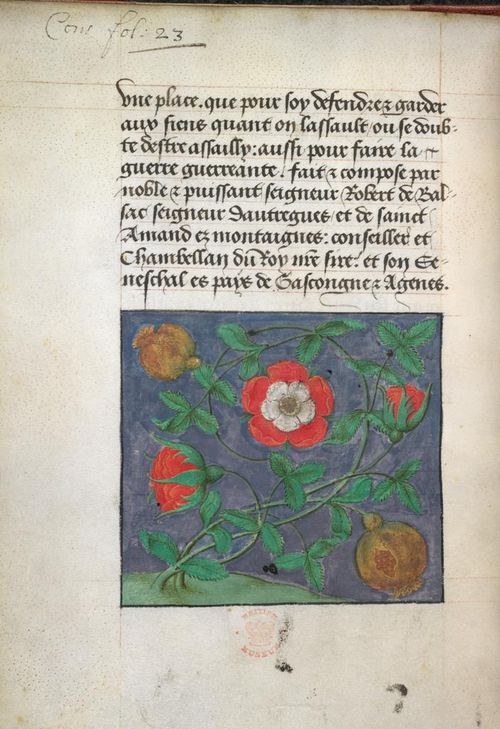 Con: fol: 23
vne place. que pour soy defendre ⁊ garder
aux siens quant on lassault / ou se doub-
te destre assailly: aussi pour faire la
guerre guerreante. fait ⁊ compose par
noble ⁊ puissant seigneur Robert de Bal-
sac seigneur Dautregues / et de sainct
Amand ez montaignes: conseiller et
Chambellan du Roy nr̃e sire: et son Se-
neschal es pays de Gascongne ⁊ Agenes.
BRITISH
MUSEUM